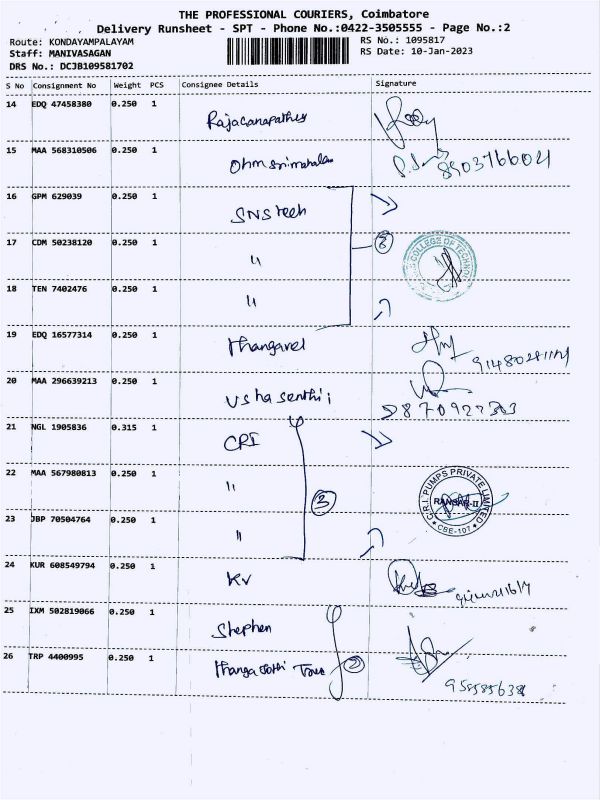 THE PROFESSIONAL COURIERS, Coimbatore
Delivery Runsheet - SPT - Phone No.:0422-3505555 - Page No.:2
Route: KONDAYAMPALAYAM
RS No.: 1095817
Staff: MANIVASAGAN
RS Date: 10-Jan-2023
DRS No.: DCJB109581702
S No Consignment No Weight PCS Consignee Details Signature
14 EDQ 47458380 0.250 1
15 MAA 568310506 0.250 1 8903766021
16 GPM 629039 0.250 1 SNS tech
17 CDM 50238120 0.250 1 " 3 COLLEGE OF TECHNO
18 TEN 7402476 0.250 1 "
19 EDQ 16577314 0.250 1 Thangavel
20 MAA 296639213 0.250 1 Usha senthil
21 NGL 1905836 0.315 1 CRI
22 MAA 567980813 0.250 1 " 3 C.R.I. PUMPS PRIVATE LIMITED CBE-107
23 JBP 70504764 0.250 1 "
24 KUR 608549794 0.250 1 KV
25 IXM 502819066 0.250 1 Stephen
26 TRP 4400995 0.250 1 2